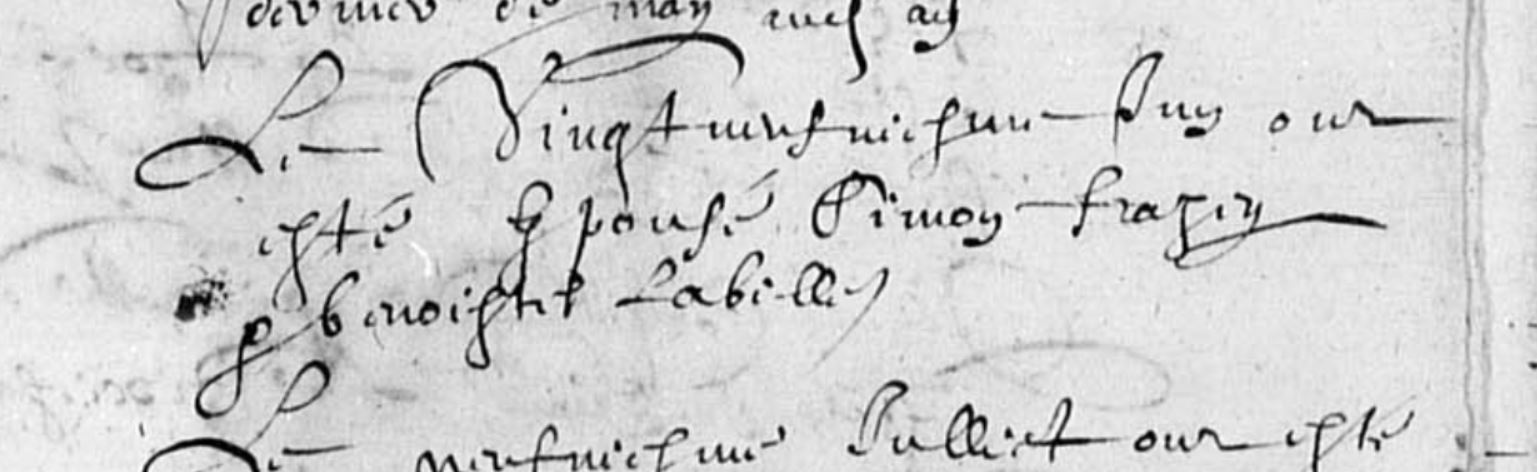 dernier de may mesf ad
Le Vingt neufviesme Juin ont
esté Espousé Simon frapin
& benoiste Labille
Le neufviesme Julliet ont esté